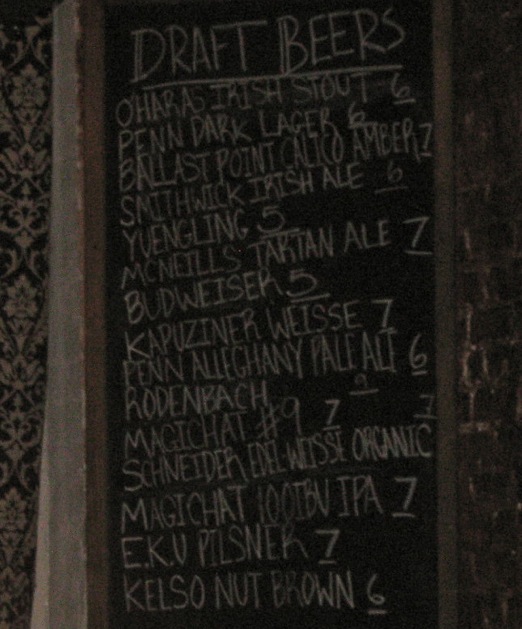 DRAFT BEERS
O'HARAS IRISH STOUT 6
PENN DARK LAGER 6
BALLAST POINT CALICO AMBER 7
SMITHWICK IRISH ALE 6
YUENGLING 5
MCNEILLS' TARTAN ALE 7
BUDWEISER 5
KAPUZINER WEISSE 7
PENN ALLEGHANY PALE ALE 6
RODENBACH 9
MAGICHAT #9 7
SCHNEIDER EDEL WEISSE ORGANIC 7
MAGICHAT 100IBU IPA 7
E.K.U PILSNER 7
KELSO NUT BROWN 6